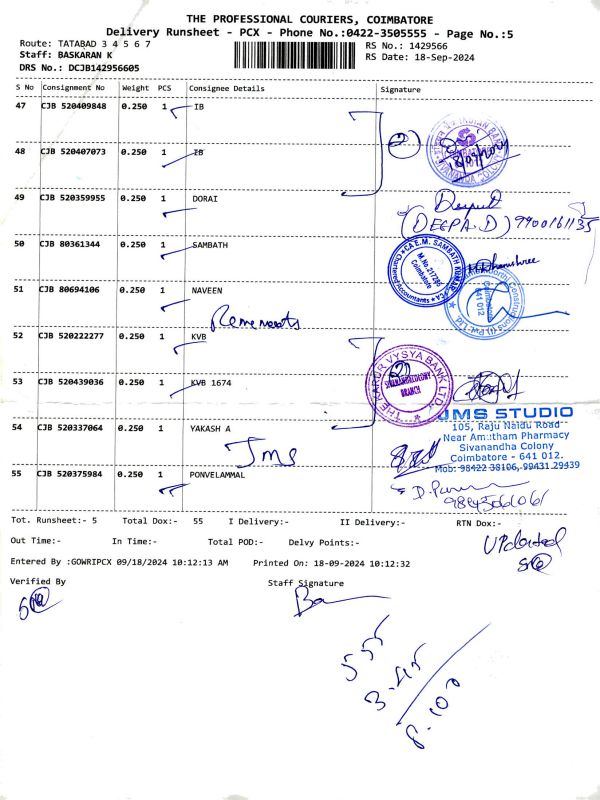 THE PROFESSIONAL COURIERS, COIMBATORE
Delivery Runsheet - PCX - Phone No.:0422-3505555 - Page No.:5
Route: TATABAD 3 4 5 6 7
RS No.: 1429566
Staff: BASKARAN K
RS Date: 18-Sep-2024
DRS No.: DCJB142956605
S No Consignment No Weight PCS Consignee Details Signature
47 CJB 520409848 0.250 1 IB
2
48 CJB 520407073 0.250 1 IB
49 CJB 520359955 0.250 1 DORAI
(DEEPA.D) 9900161135
50 CJB 80361344 0.250 1 SAMBATH
CA E.M. SAMBATH KUMAR, FCA
M.No.217286
Coimbatore
Chartered Accountants
51 CJB 80694106 0.250 1 NAVEEN
641 012
52 CJB 520222277 0.250 1 KVB
THE KARUR VYSYA BANK LTD.
SIVANANDACOLONY
BRANCH
53 CJB 520439036 0.250 1 KVB 1674
54 CJB 520337064 0.250 1 YAKASH A
JMS
JMS STUDIO
105, Raju Naidu Road
Near Amirtham Pharmacy
Sivanandha Colony
Coimbatore - 641 012.
Mob: 98422 38106, 99431 29439
55 CJB 520375984 0.250 1 PONVELAMMAL
Tot. Runsheet:- 5 Total Dox:- 55 I Delivery:- II Delivery:- RTN Dox:-
Out Time:- In Time:- Total POD:- Delvy Points:-
Updated
Entered By :GOWRIPCX 09/18/2024 10:12:13 AM Printed On: 18-09-2024 10:12:32
Verified By Staff Signature